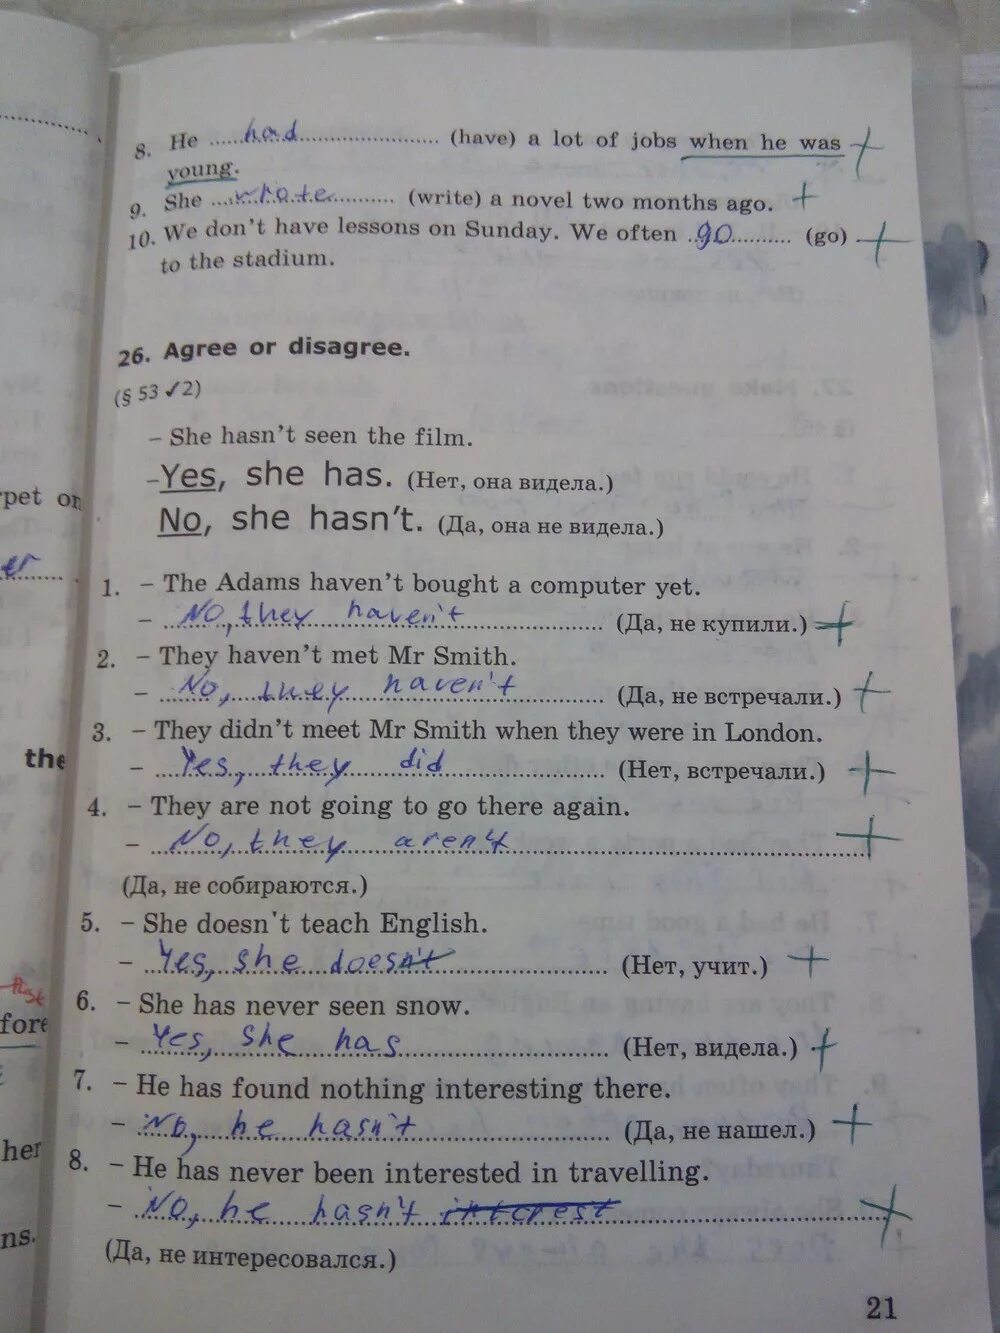 8. He ....had.................... (have) a lot of jobs when he was +
young.
9. She ...wrote........... (write) a novel two months ago. +
10. We don't have lessons on Sunday. We often ..go.......... (go) +
to the stadium.
26. Agree or disagree.
(§ 53 ✓2)
– She hasn't seen the film.
–Yes, she has. (Нет, она видела.)
No, she hasn't. (Да, она не видела.)
1. – The Adams haven't bought a computer yet.
– No, they haven't (Да, не купили.) +
2. – They haven't met Mr Smith.
– No, they haven't (Да, не встречали.) +
3. – They didn't meet Mr Smith when they were in London.
– Yes, they did (Нет, встречали.) +
4. – They are not going to go there again.
– No, they aren't +
(Да, не собираются.)
5. – She doesn't teach English.
– Yes, she does (Нет, учит.) +
6. – She has never seen snow.
– Yes, she has (Нет, видела.) +
7. – He has found nothing interesting there.
– No, he hasn't (Да, не нашел.) +
8. – He has never been interested in travelling.
– No, he hasn't interest +
(Да, не интересовался.)
21
rpet on
er
the
fore
her
ns.